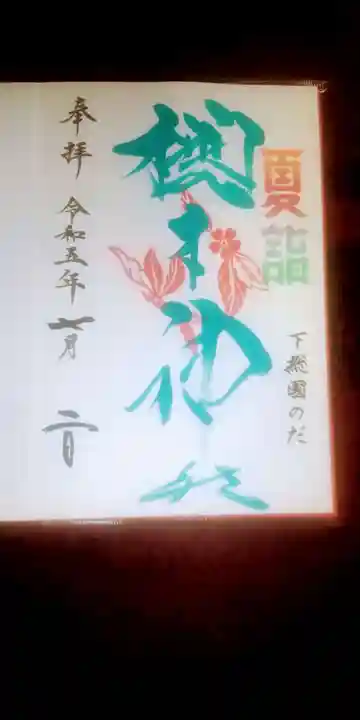 夏詣
下総国のだ
櫻木神社
奉拝
令和五年
七月
二日